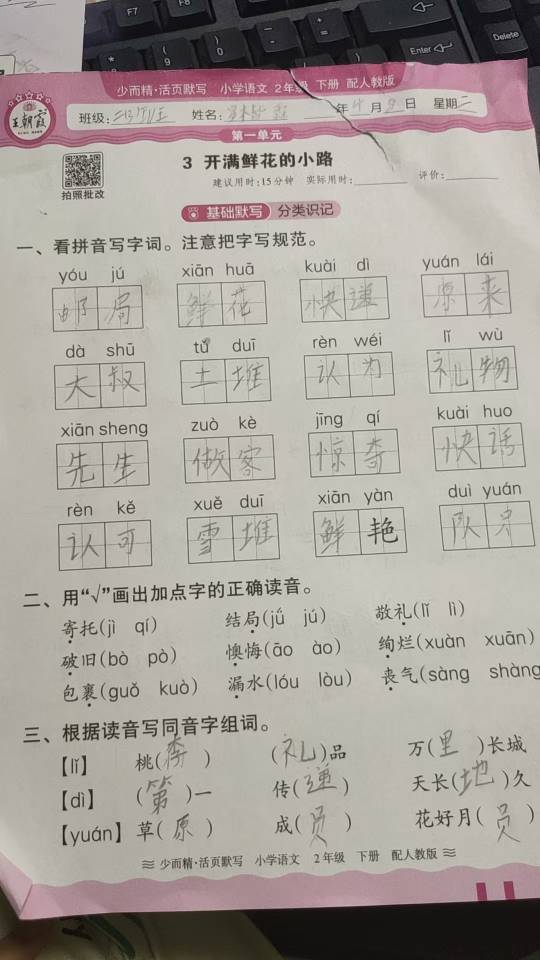 F7
F8
少而精·活页默写 小学语文 2年级 下册 配人教版
王朝霞
班级: 姓名: 年 4 月 9 日 星期二
第一单元
拍照批改
3 开满鲜花的小路
建议用时:15分钟 实际用时: 评价:
基础默写 分类识记
一、看拼音写字词。注意把字写规范。
yóu jú xiān huā kuài dì yuán lái
邮局 鲜花 快递 原来
dà shū tǔ duī rèn wéi lǐ wù
大叔 土堆 认为 礼物
xiān sheng zuò kè jīng qí kuài huo
先生 做客 惊奇 快话
rèn kě xuě duī xiān yàn duì yuán
认可 雪堆 鲜艳 队员
二、用“√”画出加点字的正确读音。
寄托(jì qí) 结局(jǘ jú) 敬礼(lǐ lì)
破旧(bò pò) 懊悔(āo ào) 绚烂(xuàn xuān)
包裹(guǒ kuò) 漏水(lóu lòu) 丧气(sàng shàng
三、根据读音写同音字组词。
【lǐ】 桃(李) (礼)品 万(里)长城
【dì】 (第)一 传(递) 天长(地)久
【yuán】 草(原) 成(员) 花好月(员)
少而精·活页默写 小学语文 2年级 下册 配人教版
Enter
Delete